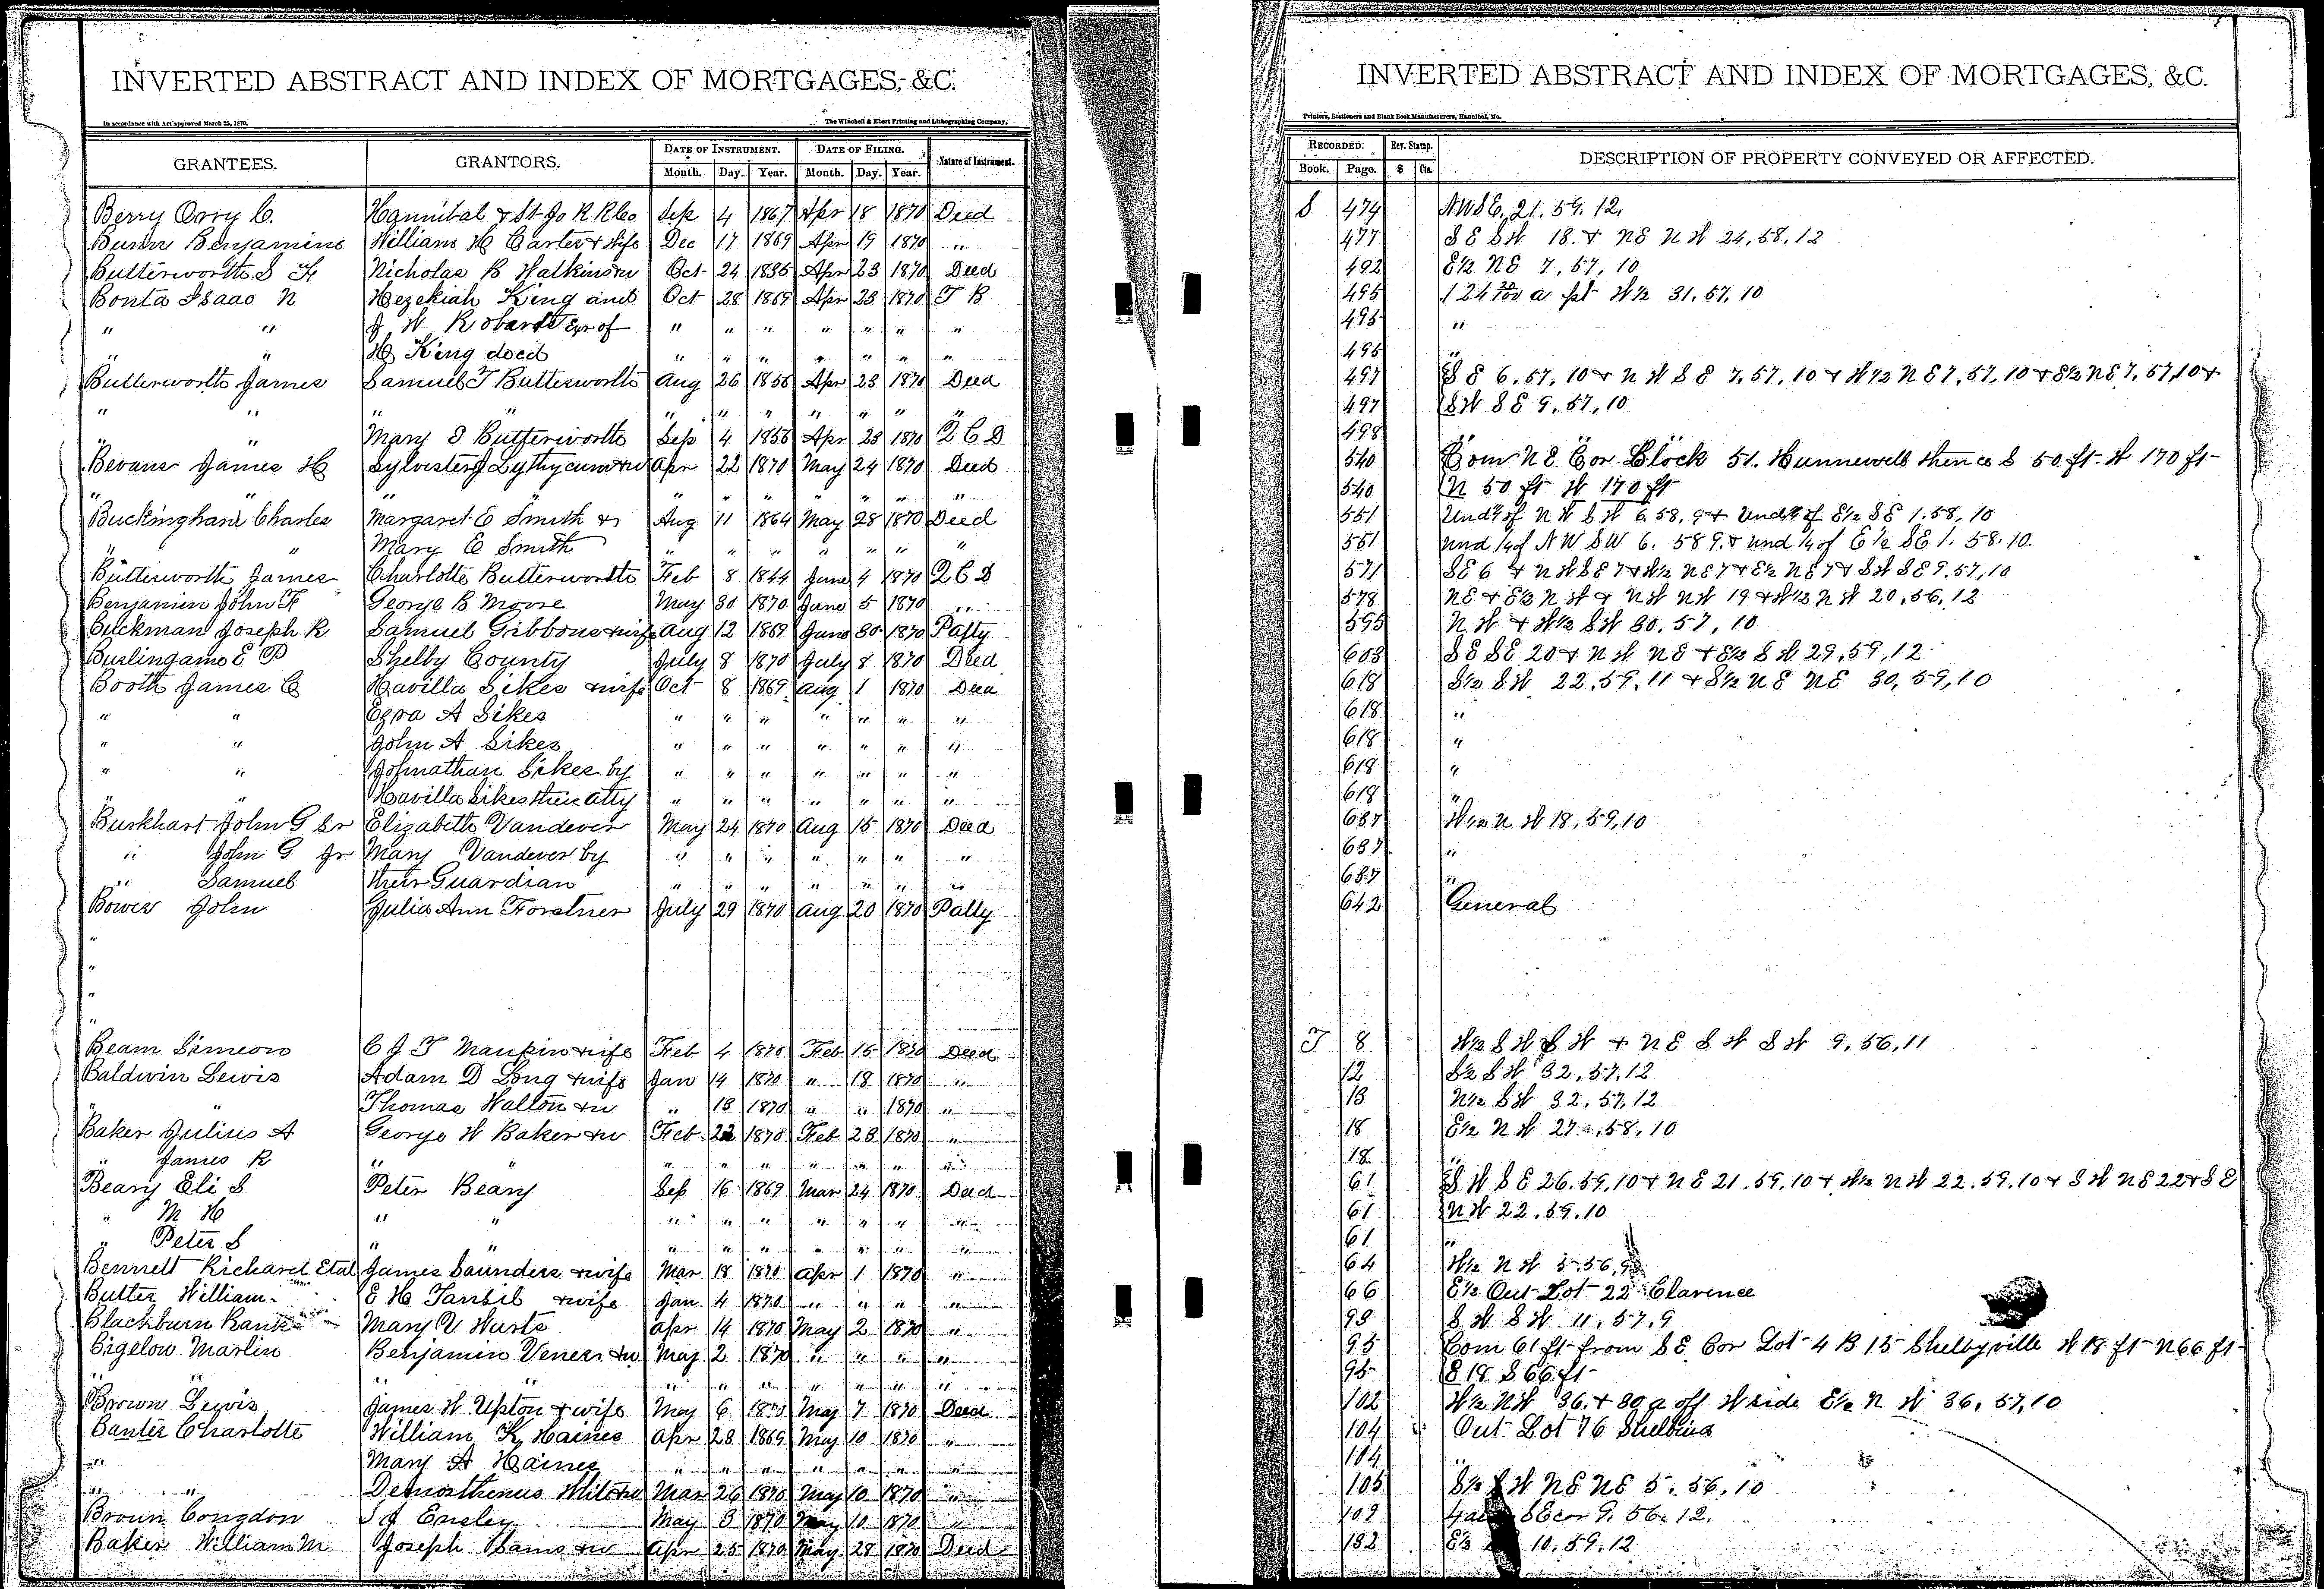 INVERTED ABSTRACT AND INDEX OF MORTGAGES, &C.
In accordance with Act approved March 25, 1870.
The Winchell & Ebert Printing and Lithographing Company,
GRANTEES. GRANTORS. DATE OF INSTRUMENT. DATE OF FILING. Nature of Instrument.
Month. Day. Year. Month. Day. Year.
Berry Orry C. Hannibal & St Jo R R Co Sep 4 1867 Apr 18 1870 Deed
Benjamine William H Carter & Wife Dec 17 1869 Apr 19 1870 "
Butterworth S F Nicholas B Watkins Oct 24 1835 Apr 23 1870 Deed
Bonta Isaac N Hezekiah King and Oct 28 1869 Apr 23 1870 T B
" " J W Robards Exr of " " " " " " "
" " H King decd " " " " " " "
Butterworth James Samuel T Butterworth Aug 26 1858 Apr 23 1870 Deed
" " " " " " " " " " "
" " Mary S Butterworth Sep 4 1858 Apr 23 1870 Q C D
Bevans James H Sylvester J Apr 22 1870 May 24 1870 Deed
" " " " " " " " "
Buckingham Charles Margaret E Smith & Aug 11 1864 May 28 1870 Deed
" " Mary E Smith " " " " " " "
Butterworth James Charlotte Butterworth Feb 8 1844 June 4 1870 Q C D
Benjamin John F George B Moore May 30 1870 June 5 1870 "
Buckman Joseph R Samuel Gibbons & wife Aug 12 1869 June 30 1870 Patty
Burlingame E P Shelby County July 8 1870 July 8 1870 Deed
Booth James C Havilla Sikes & wife Oct 8 1869 Aug 1 1870 Deed
" " Ezra A Sikes " " " " " " "
" " John A Sikes " " " " " " "
" " Johnathan Sikes by " " " " " " "
" " Havilla Sikes their Atty " " " " " " "
Burkhart John G Sr Elizabeth Vandever May 24 1870 Aug 15 1870 Deed
" John G Jr Mary Vandever by " " " " " " "
" Samuel their Guardian " " " " " " "
Bower John Julia Ann Forstner July 29 1870 Aug 20 1870 Patty
"
"
"
"
Beam Simeon C J T Maupin & wife Feb 4 1870 Feb 15 1870 Deed
Baldwin Lewis Adam D Long & wife Jan 14 1870 " 18 1870 "
" " Thomas Walton & w " 13 1870 " " 1870 "
Baker Julius A George W Baker & w Feb 22 1870 Feb 28 1870 "
" James R " " " " " " " " "
Beary Eli S Peter Beary Sep 16 1869 Mar 24 1870 Deed
" M H " " " " " " " " "
" Peter S " " " " " " " " "
Bennett Richard Etal James Saunders & wife Mar 18 1870 Apr 1 1870 "
Butler William E H Tansil & wife Jan 4 1870 " " " "
Blackburn Mary V Apr 14 1870 May 2 1870 "
Bigelow Martin Benjamin & w May 2 1870 " " " "
" " " " " " " " " " "
Brown Lewis James W Upton & wife May 6 1870 May 7 1870 Deed
Banter Charlotte William K Haines Apr 28 1869 May 10 1870 "
" Mary A Haines " " " " " " "
" " & w Mar 26 1870 May 10 1870 "
Congdon J Ensley May 3 1870 May 10 1870 "
Baker William M Joseph & w Apr 25 1870 May 28 1870 Deed
INVERTED ABSTRACT AND INDEX OF MORTGAGES, &C.
Printers, Stationers and Blank Book Manufacturers, Hannibal, Mo.
RECORDED. Rev. Stamp. DESCRIPTION OF PROPERTY CONVEYED OR AFFECTED.
Book. Page. $ Cts.
S 474 NW SE, 21. 59. 12,
477 S E S W 18. & NE N W 24, 58, 12
492 E½ NE 7, 57, 10
495 124 a pt W½ 31, 57, 10
495 "
495 "
497 S E 6, 57, 10 & N W S E 7, 57, 10 & W½ N E 7, 57, 10 & E½ N E 7, 57, 10 &
497 S W S E 9, 57, 10
498 " "
540 Com N E Cor Block 51. Hunnewell thence S 50 ft W 170 ft
540 N 50 ft W 170 ft
551 Und ¼ of N W S W 6. 58, 9 & Und ¼ of E½ S E 1. 58, 10
551 und ¼ of N W S W 6. 58 9. & und ¼ of E ½ SE 1. 58. 10.
571 S E 6 & N W S E 7 & W½ N E 7 & E½ N E 7 & S W S E 9. 57, 10
578 N E & E½ N W & N W N W 19 & W½ N W 20, 56, 12
595 N W & W½ S W 30. 57, 10
603 S E S E 20 & N W N E & E½ S W 29, 59, 12
618 S½ S W 22, 59, 11 & S½ N E N E 30, 59, 10
618 "
618 "
618 "
618 "
637 W½ N W 18, 59, 10
637 "
637 "
642 General
T 8 W½ S W S W & N E S W S W 9, 56, 11
12 S½ S W 32, 57, 12
13 N½ S W 32, 57, 12
18 E½ N W 27, 58, 10
18 "
61 S W S E 26. 59, 10 & N E 21. 59. 10 & W½ N W 22. 59. 10 & S W N E 22 & S E
61 N W 22. 59. 10
61 "
64 W½ N W 5. 56, 9
66 E½ Out Lot 22 Clarence
93 S W S W 11, 57, 9
95 Com 61 ft from S E Cor Lot 4 B 15 Shelbyville W 18 ft N 66 ft
95 E 18 S 66 ft
102 W½ N W 36. & 30 a off W side E½ N W 36, 57, 10
104 Out Lot 76 Shelbina
104 "
105 S½ S W N E N E 5, 56, 10
109 SE cor 9. 56. 12.
132 E½ 10. 59. 12